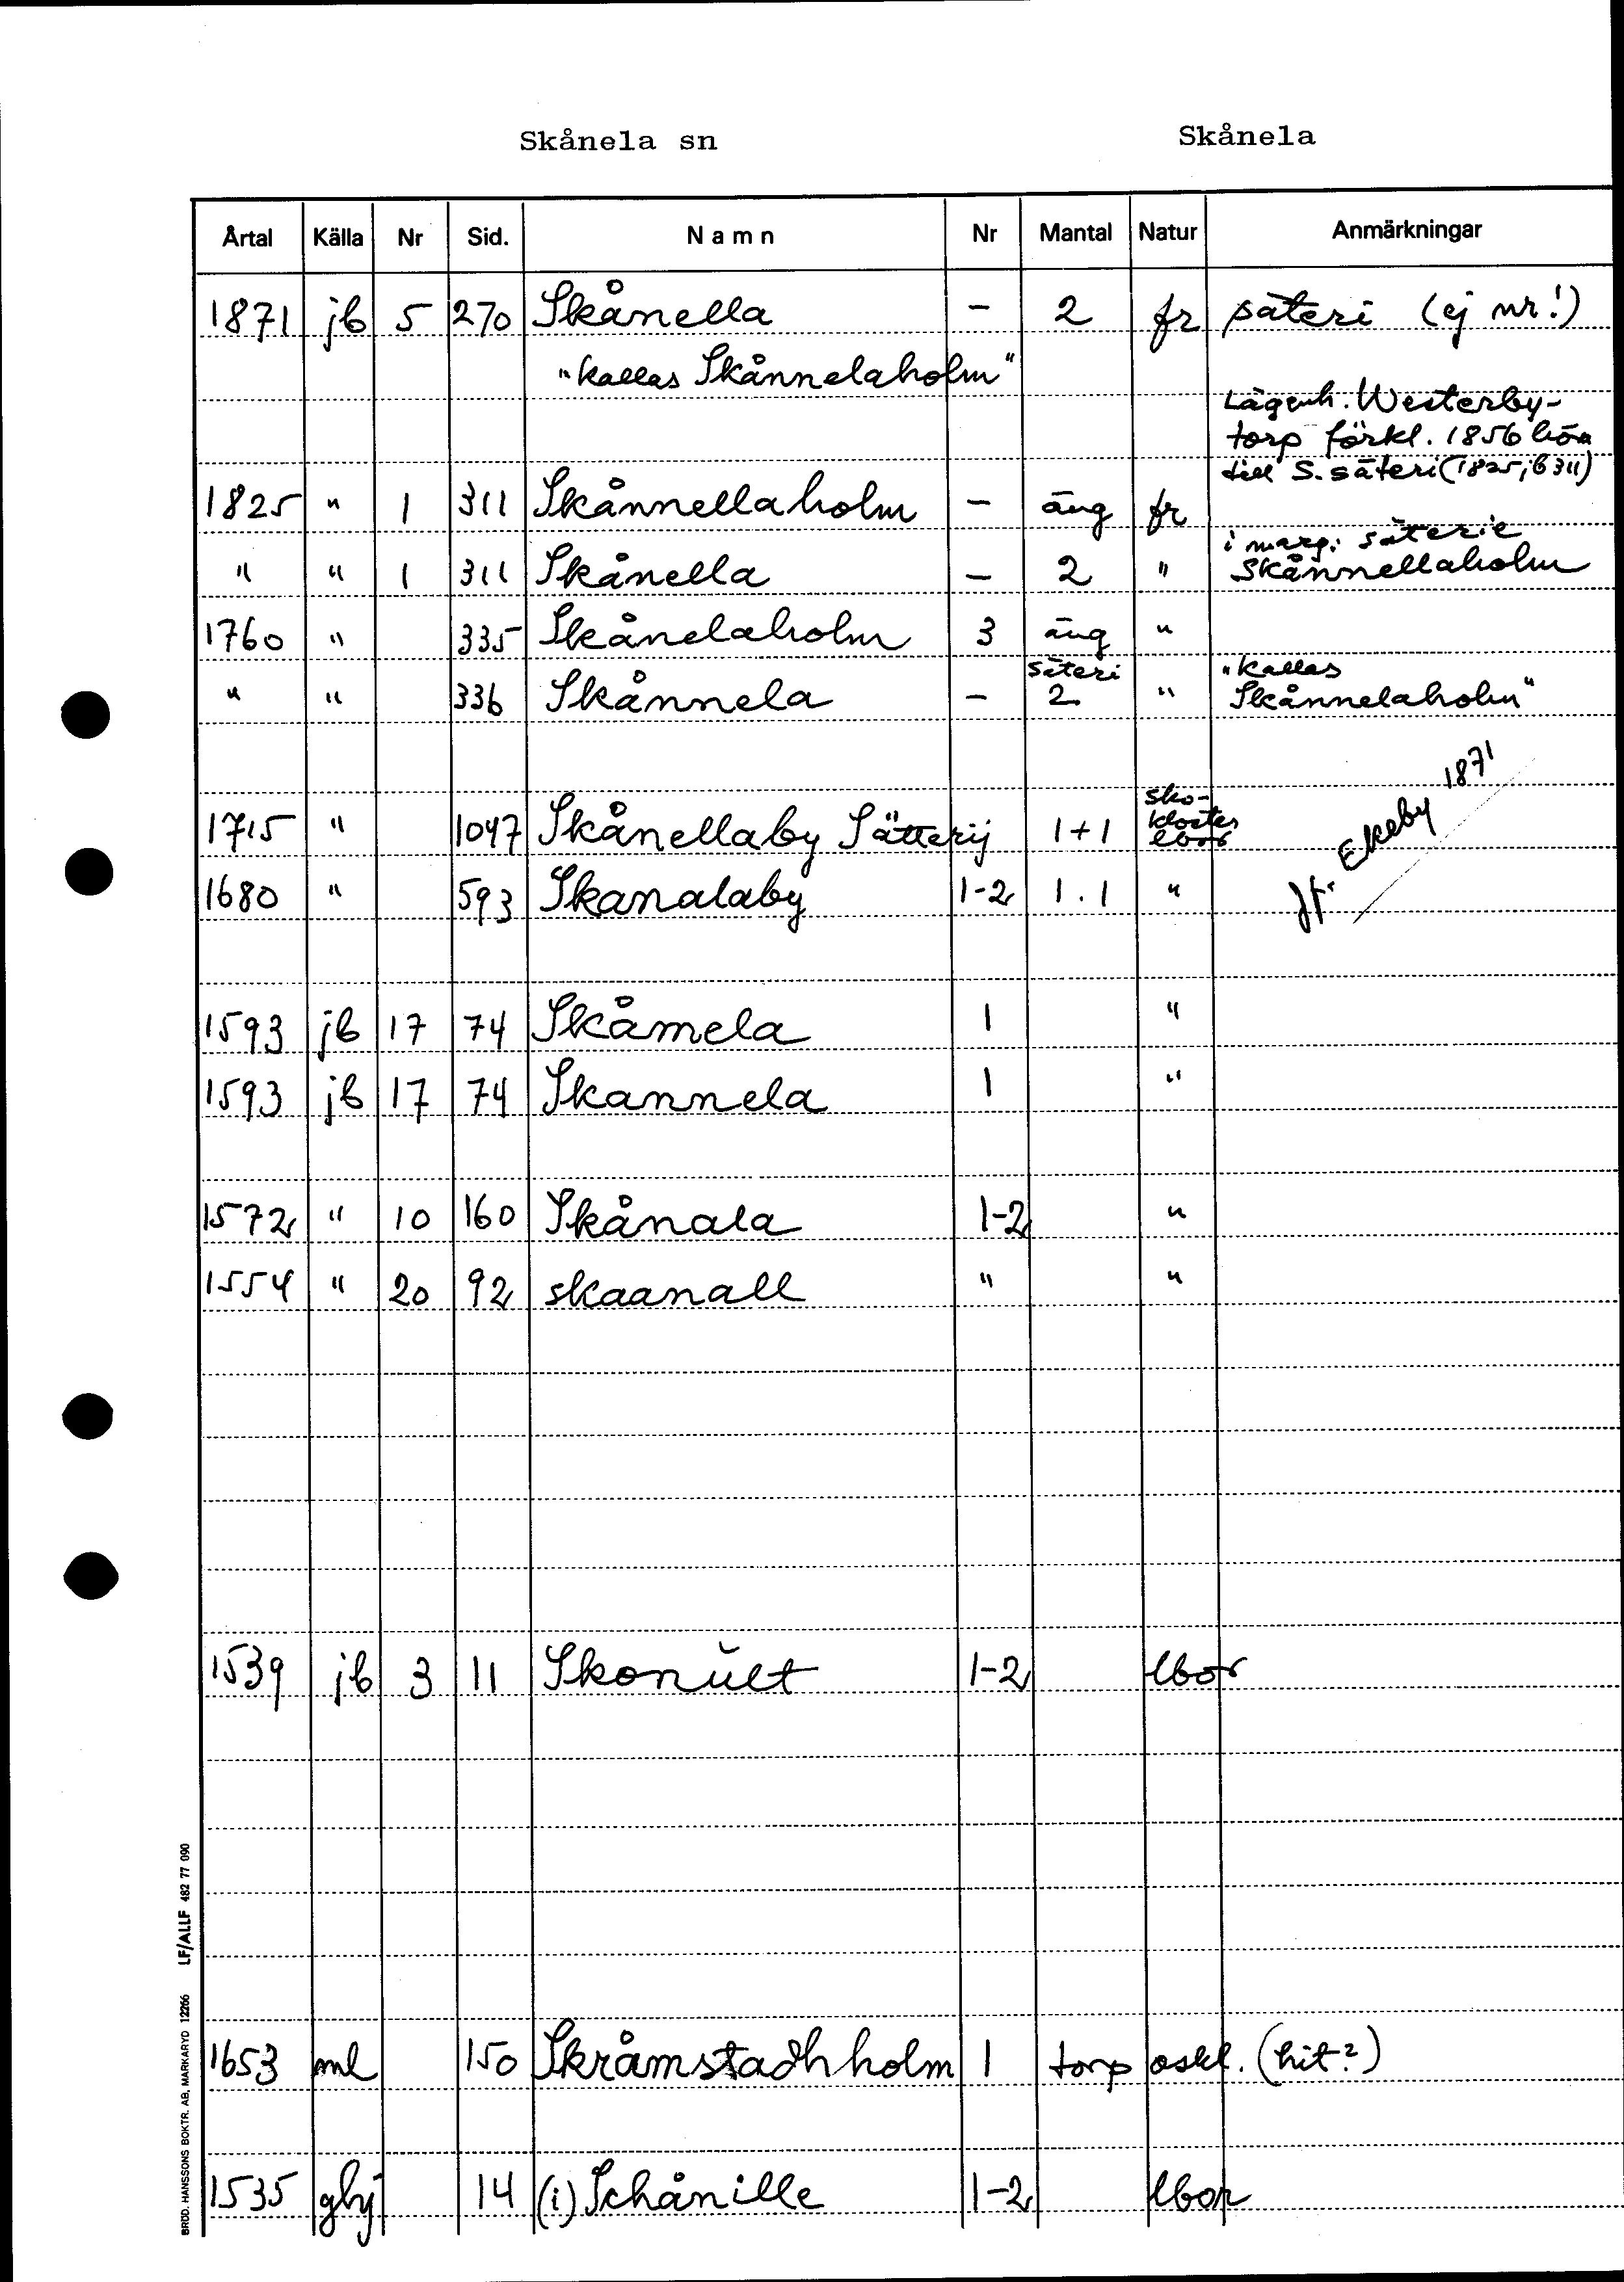 Skånela sn Skånela
Årtal Källa Nr Sid. Namn Nr Mantal Natur Anmärkningar
1871 jb 5 270 Skånella – 2 fr säteri (ej nr!)
"kallas Skånnelaholm"
Lägenh. Westerby-
torp förkl. 1856 höra
till S. säteri (1825, jb 311)
1825 " 1 311 Skånnellaholm – äng fr
i marg: säterie
" " 1 311 Skånella – 2 " Skånnellaholm
1760 " 335 Skånelaholm 3 äng "
säteri "kallas
" " 336 Skånnela – 2 " Skånnelaholm"
Jfr Ekeby 1871
sko-
kloster
1715 " 1047 Skånellaby Sätterij 1+1 lbor
1680 " 593 Skanalaby 1-2 1.1 "
1593 jb 17 74 Skåmela 1 "
1593 jb 17 74 Skannela 1 "
1572 " 10 160 Skånala 1-2 "
1554 " 20 92 skaanall " "
1539 jb 3 11 Skonŭlt 1-2 lbor
1653 ml 150 Skråmstadhholm 1 torp oskl. (hit?)
1535 ghj 14 (i) Schånille 1-2 lbor
BROD. HANSSONS BOKTR. AB, MARKARYD 12266 LF/ALLF 482 77 090